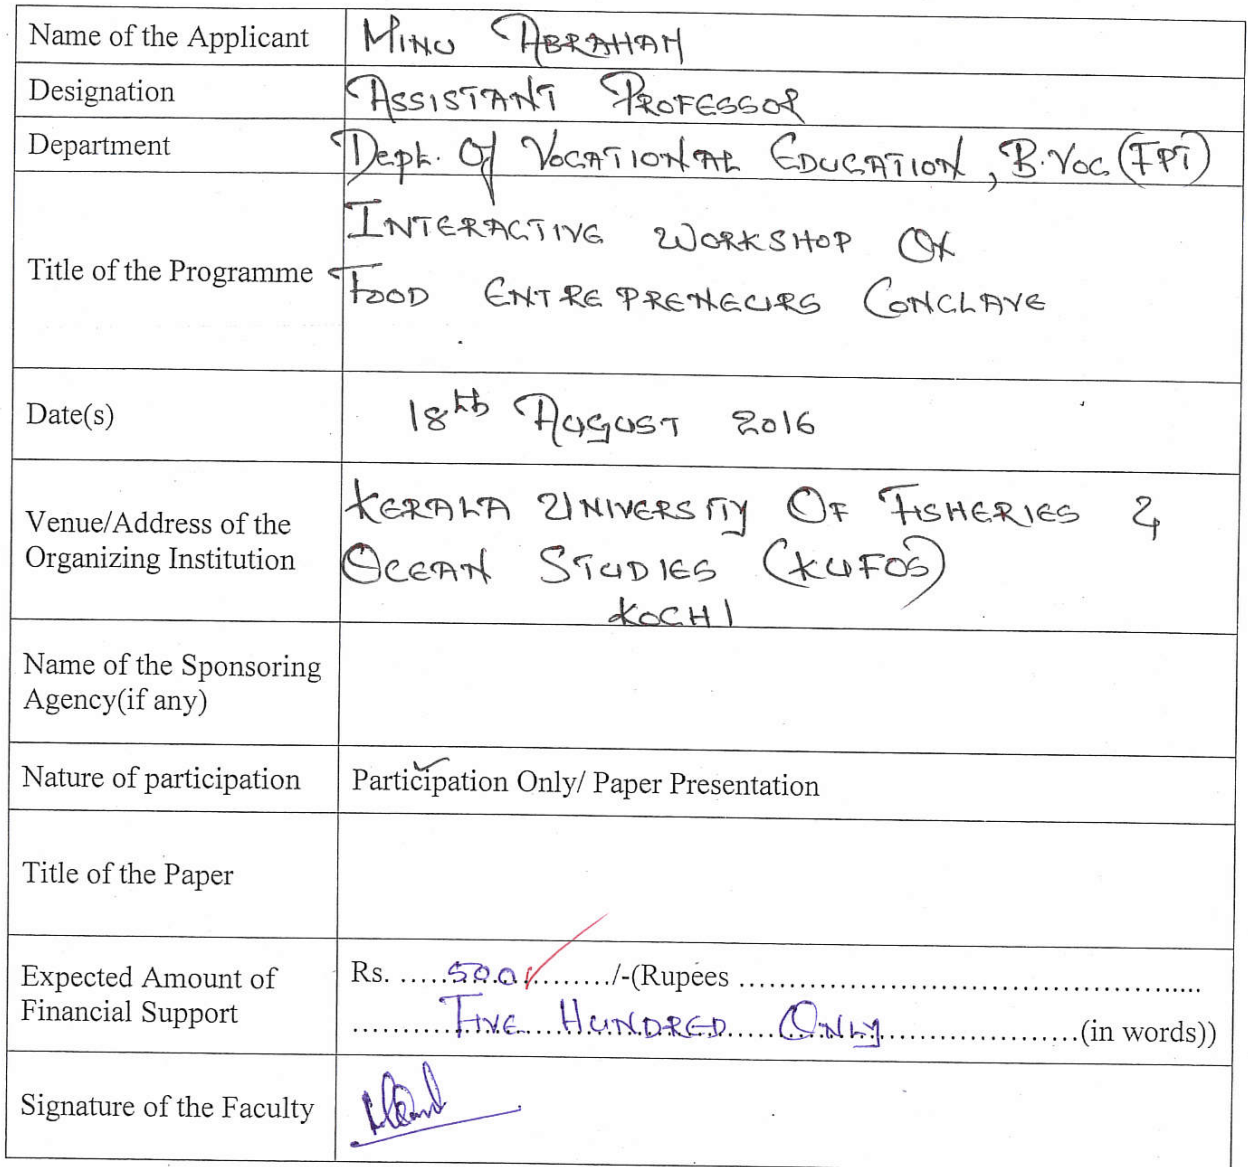 Name of the Applicant MINU ABRAHAM
Designation ASSISTANT PROFESSOR
Department Dept. Of VOCATIONAL EDUCATION, B.VOC (FPT)
Title of the Programme INTERACTIVE WORKSHOP ON
FOOD ENTREPRENEURS CONCLAVE
Date(s) 18th AUGUST 2016
Venue/Address of the
Organizing Institution
KERALA UNIVERSITY OF FISHERIES &
OCEAN STUDIES (KUFOS)
KOCHI
Name of the Sponsoring
Agency(if any)
Nature of participation Participation Only/ Paper Presentation
Title of the Paper
Expected Amount of
Financial Support
Rs. .....500/........./-(Rupees ..............................................
...........FIVE...HUNDRED.....ONLY.....................(in words))
Signature of the Faculty